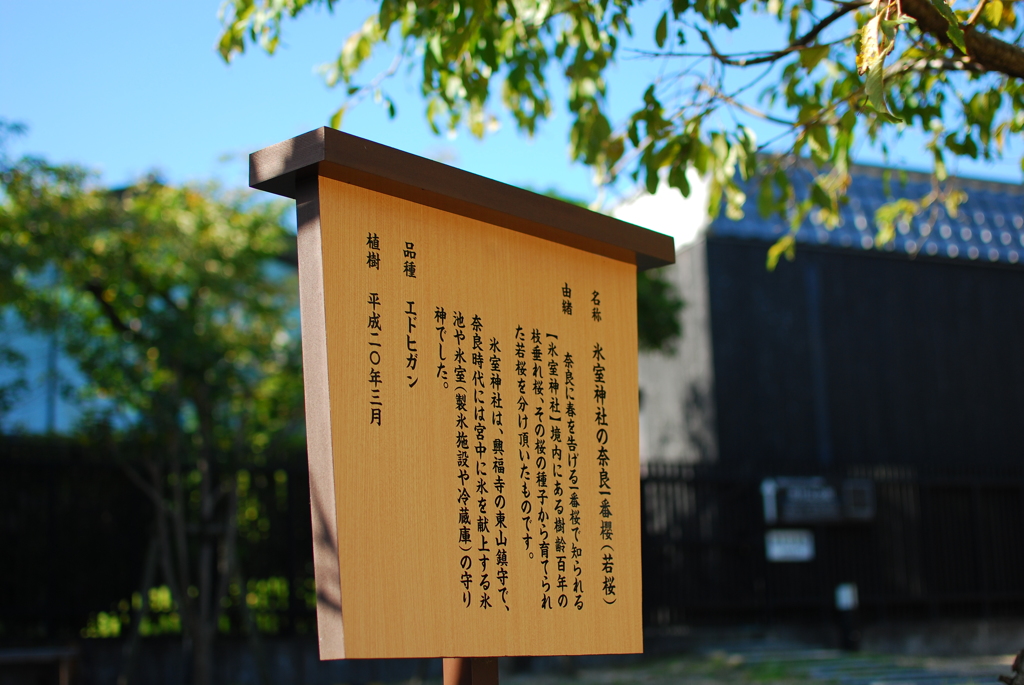 名称　氷室神社の奈良一番櫻（若桜）
由緒　奈良に春を告げる一番桜で知られる
【氷室神社】境内にある樹齢百年の
枝垂れ桜、その桜の種子から育てられ
た若桜を分け頂いたものです。
氷室神社は、興福寺の東山鎮守で、
奈良時代には宮中に氷を献上する氷
池や氷室（製氷施設や冷蔵庫）の守り
神でした。
品種　エドヒガン
植樹　平成二〇年三月